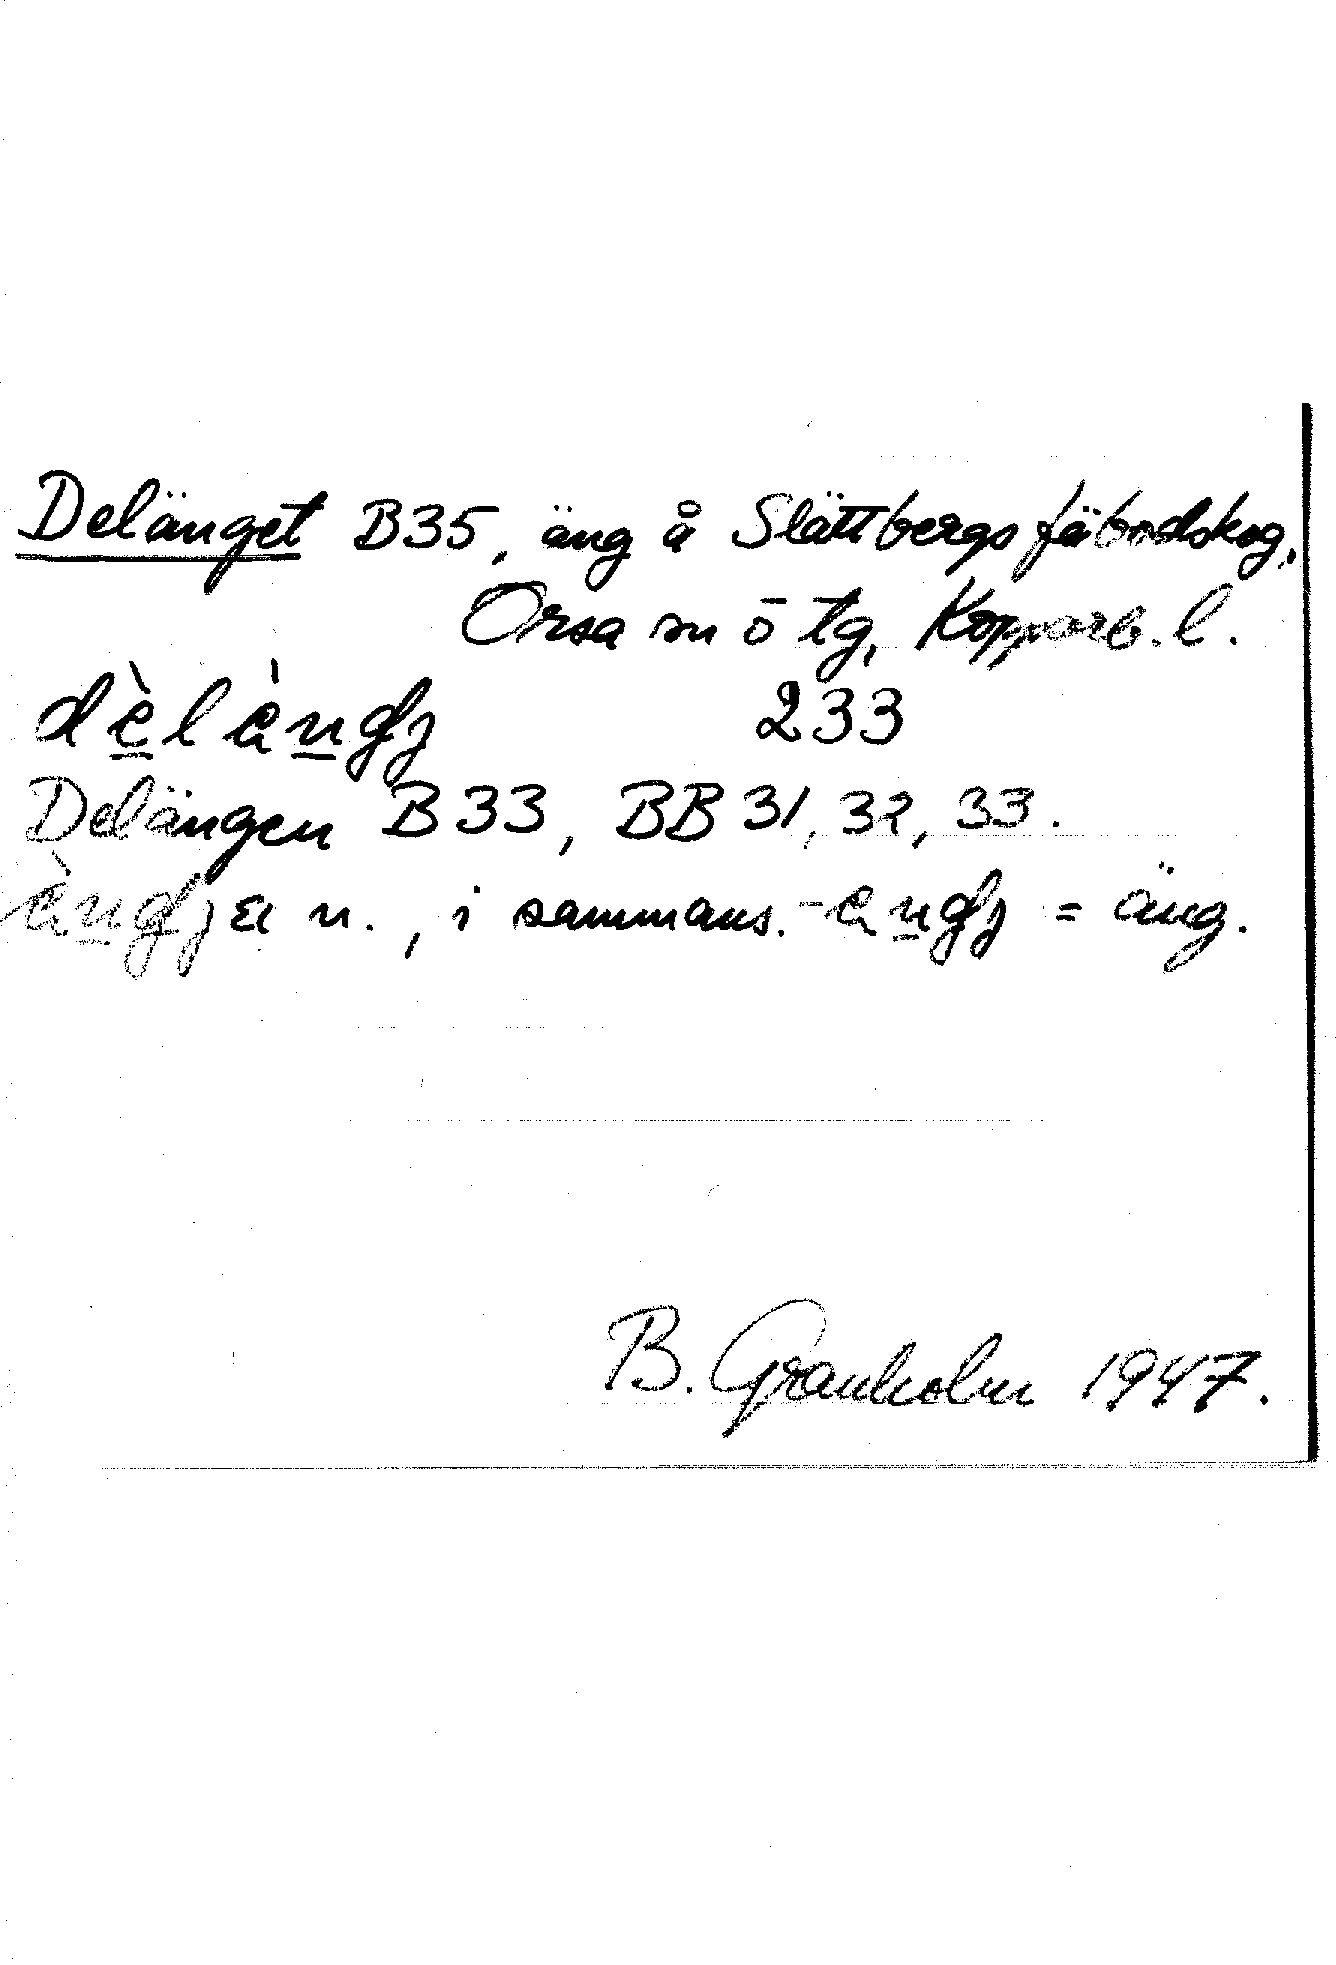 Delänget B35, äng å Slättbergs fäbodskog,
Orsa sn ö tg, Kopparb. l.
233
Delängen B33, BB 31, 32, 33.
n., i sammans. = äng.
B. Granholm 1947.